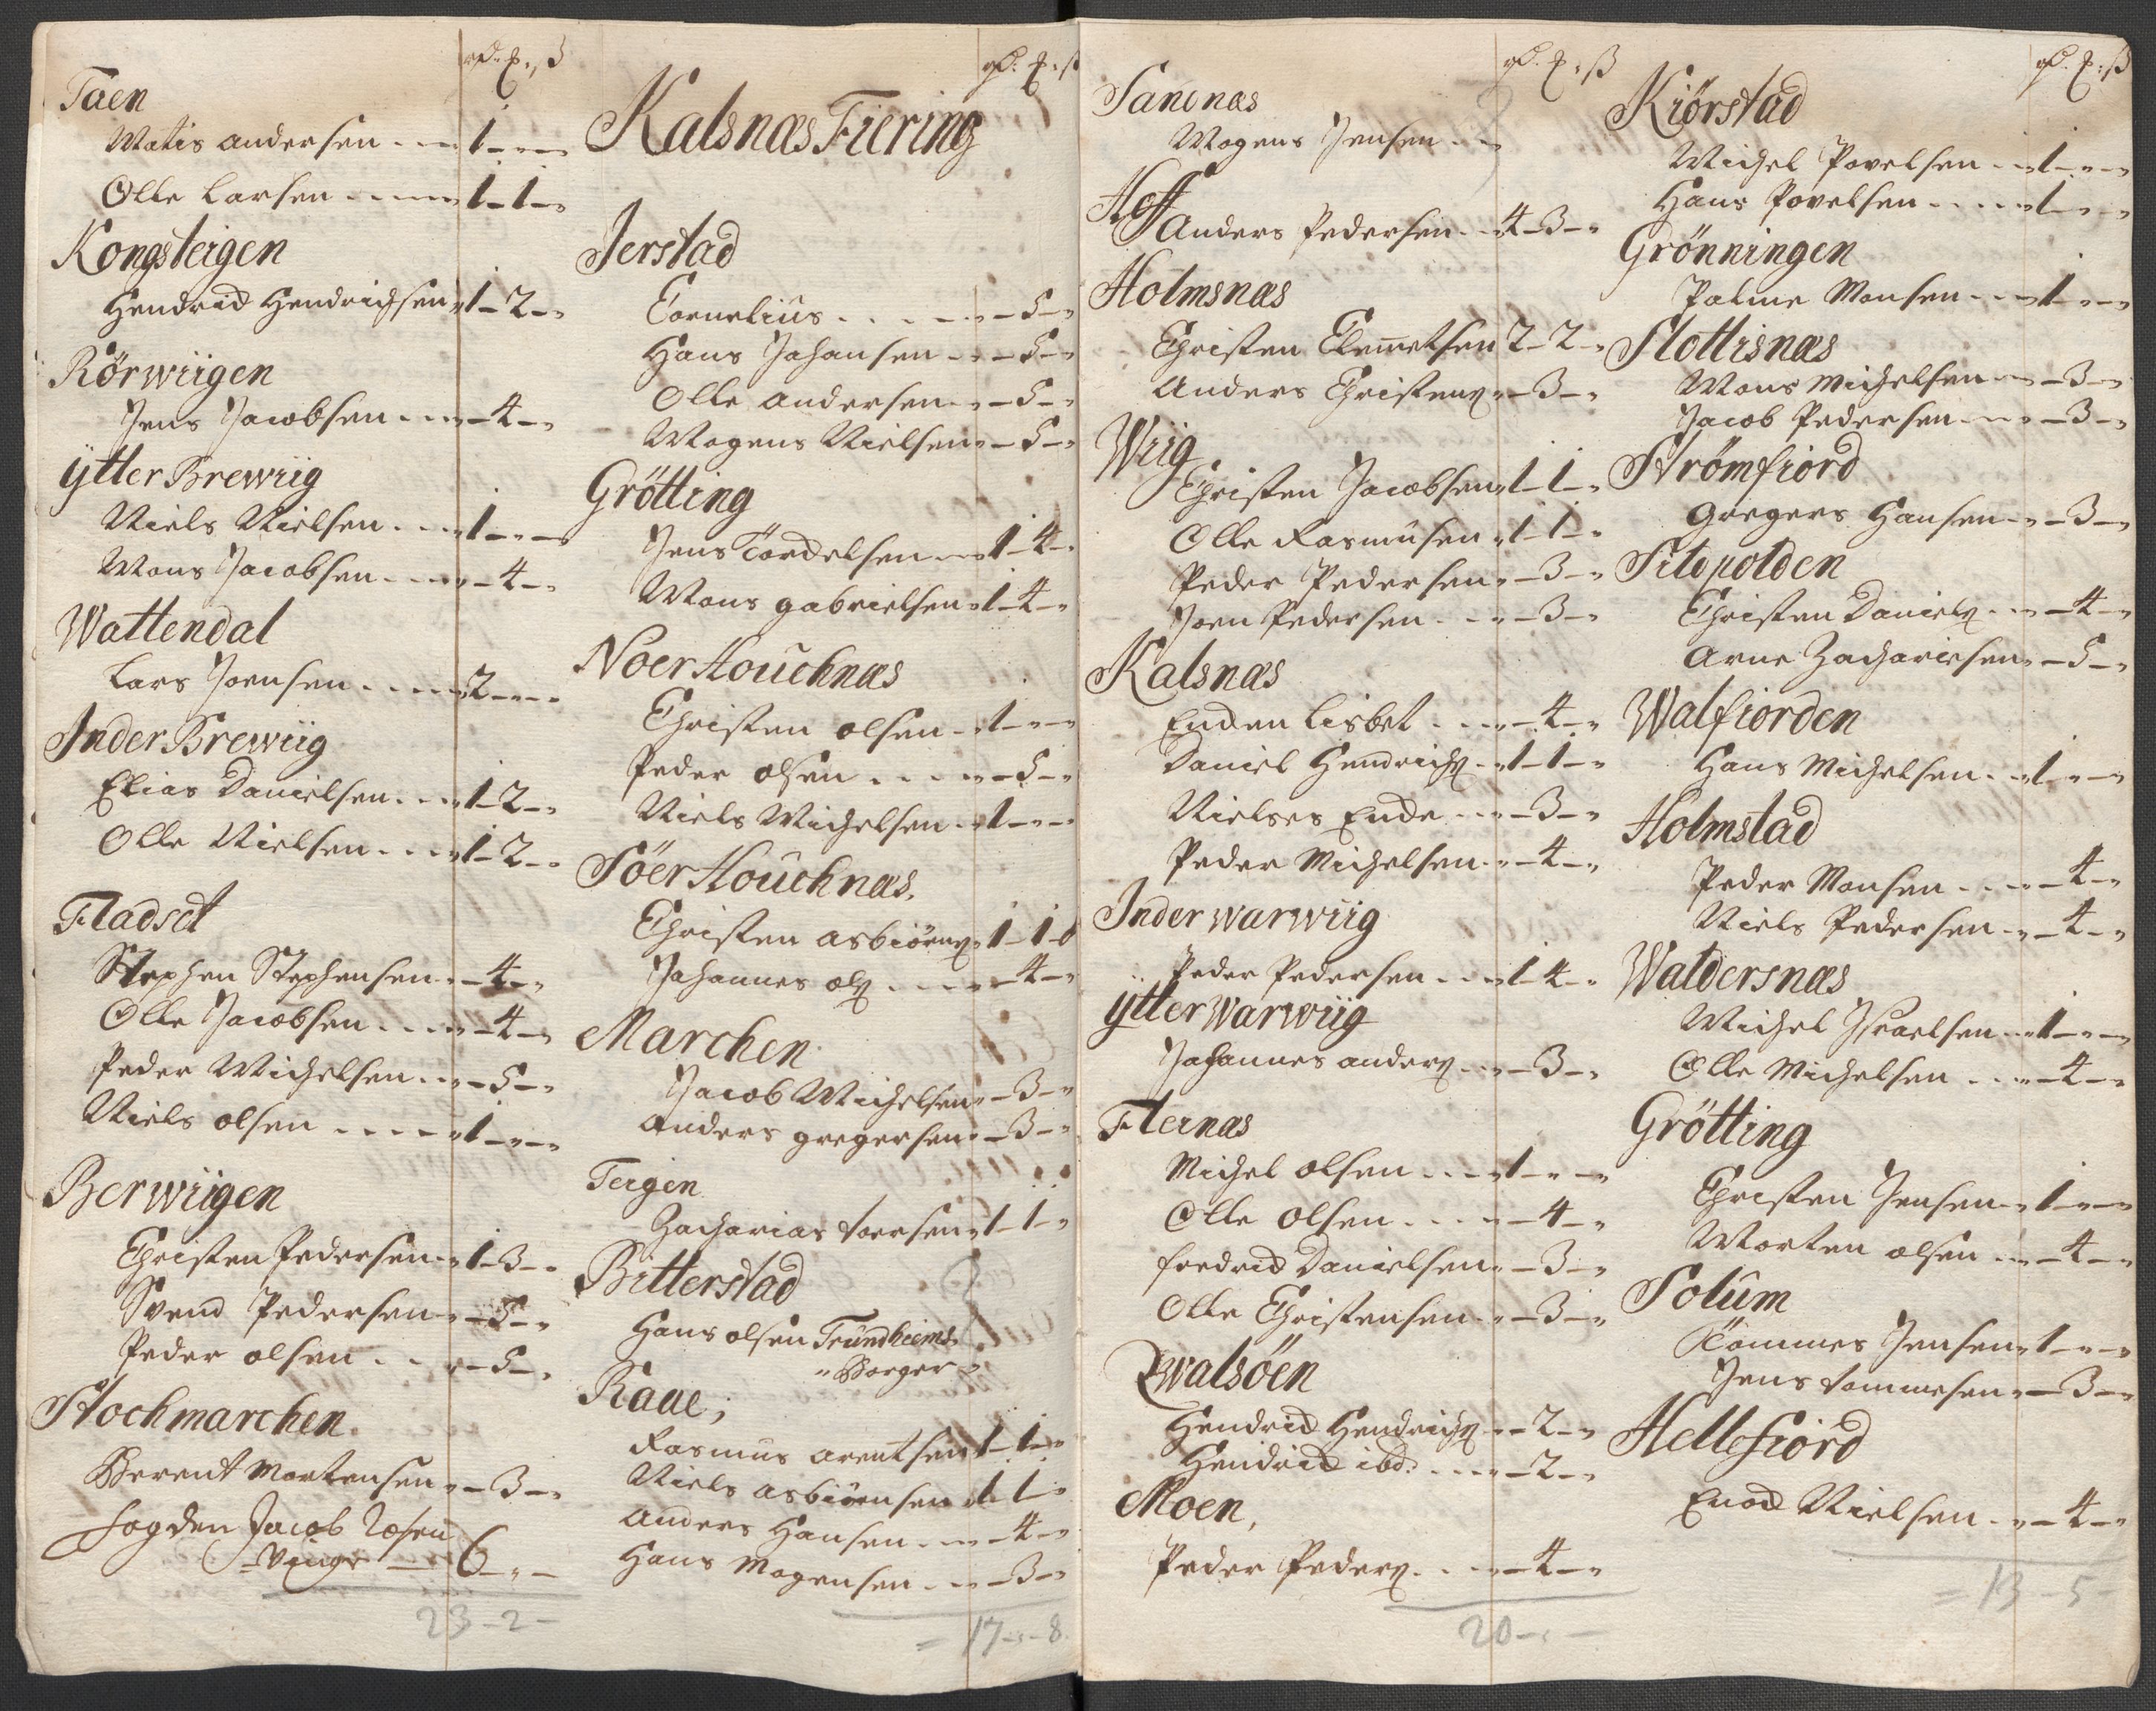 rd. ẜ. ß
Taen
Matis Andersen . . - 1 - " - "
Olle Larsen . . . . 1 - 1 - "
Kongsteigen
Hendrich Hendrichsen " 1 - 2 - "
Rörwiigen
Jens Jacobsen . . . " - 4 - "
Ytter Brewiig
Niels Nielsen . . . " 1 - " - "
Mons Jacobsen . . . . " - 4 - "
Wattendal
Lars Joensen . . . . " 2 - " - "
Inder Brewiig
Elias Danielsen . . . " 1 - 2 - "
Olle Nielsen . . . " 1 - 2 - "
Fladset
Stephen Stephensen . " - 4 - "
Olle Jacobsen . . . . " - 4 - "
Peder Michelsen . . " - 5 - "
Niels Olsen . . . . " 1 - " - "
Berwiigen
Christen Pedersen . " 1 - 3 - "
Svend Pedersen . " - 5 - "
Peder Olsen . . . " - 5 - "
Stochmarchen
Berent Mortensen . " - 3 - "
Fogden Jacob
6 - " -
23 - 2 -
rd. ẜ. ß
Kalsnæs Fiering
Jerstad
Cornelius . . . . . " - 5 - "
Hans Johansen . . " - 5 - "
Olle Andersen . . " - 5 - "
Mogens Nielsen . " - 5 - "
Grötting
Jens Tordelsen . . " 1 - 4 - "
Mons Gabrielsen . " 1 - 4 - "
Noer Houchnæs
Christen Olsen . . " 1 - " - "
Peder Olsen . . . . " - 5 - "
Niels Michelsen . . " 1 - " - "
Söer Houchnæs.
Christen Asbiörns. " 1 - 1 - 8
Johannes Ols. . . . . " - 4 - "
Marchen
Jacob Michelsen . " - 3 - "
Anders Gregersen . " - 3 - "
Teigen
Zacharias Toersen " 1 - 1 - "
Bitterstad
Hans Olsen Trundheims
" Borger "
Raae;
Rasmus Arentsen " 1 - 1 - "
Niels Asbiörnsen " 1 - 1 - "
Anders Hansen . . . " - 4 - "
Hans Mogensen . . . " - 3 - "
= 17 - " - 8.
rd. ẜ. ß
Sandnæs
Mogens Jensen . . "
Hoff
Anders Pedersen . . " 4 - 3 - "
Holmsnæs
Christen Clemetsen 2 - 2 - "
Anders Christens. " - 3 - "
Wiig
Christen Jacobsen " 1 - 1 - "
Olle Rasmusen " 1 - 1 - "
Peder Pedersen . " - 3 - "
Joen Pedersen . . . " - 3 - "
Kalsnæs
Enchen Lisbet . . . . " - 4 - "
Daniel Hendrichs. . " 1 - 1 - "
Nielses Enche . . . " - 3 - "
Peder Michelsen . " - 4 - "
Inder warwiig
Peder Pedersen . . . " 1 - 4 - "
Ytter Warwiig
Johannes Anders. . . " - 3 - "
Flernæs
Michel Olsen . . . . " 1 - " - "
Olle Olsen . . . . . " - 4 - "
Fredrich Danielsen . " - 3 - "
Olle Christensen . . " - 3 - "
Qwalsöen
Hendrich Hendrichs. . " - 2 - "
Hendrich ibd: . . . . " - 2 - "
Moen,
Peder Peders. . . . . " - 4 - "
20 - " -
rd. ẜ. ß
Kiörstad
Michel Povelsen . . " 1 - " - "
Hans Povelsen . . . . " 1 - " - "
Grönningen
Palme Monsen . . . " 1 - " - "
Slottisnæs
Mons Michelsen . . " - 3 - "
Jacob Pedersen . . . " - 3 - "
Strömfiord
Gregers Hansen . . " - 3 - "
Sildpolden
Christen Daniels. . . " - 4 - "
Arne Zachariesen . " - 5 - "
Walfiorden
Hans Michelsen . . " 1 - " - "
Holmstad
Peder Monsen . . . . " - 4 - "
Niels Pedersen . . " - 4 - "
Waldersnæs
Michel Israelsen . . " 1 - " - "
Olle Michelsen . . . " - 4 - "
Grötting
Christen Jensen . " 1 - " - "
Morten Olsen . . . " - 4 - "
Solum
Tommes Jensen . " 1 - " - "
Jens Tommesen . " - 3 - "
Hellefiord
Enoch Nielsen . . " - 4 - "
= 13 - 5